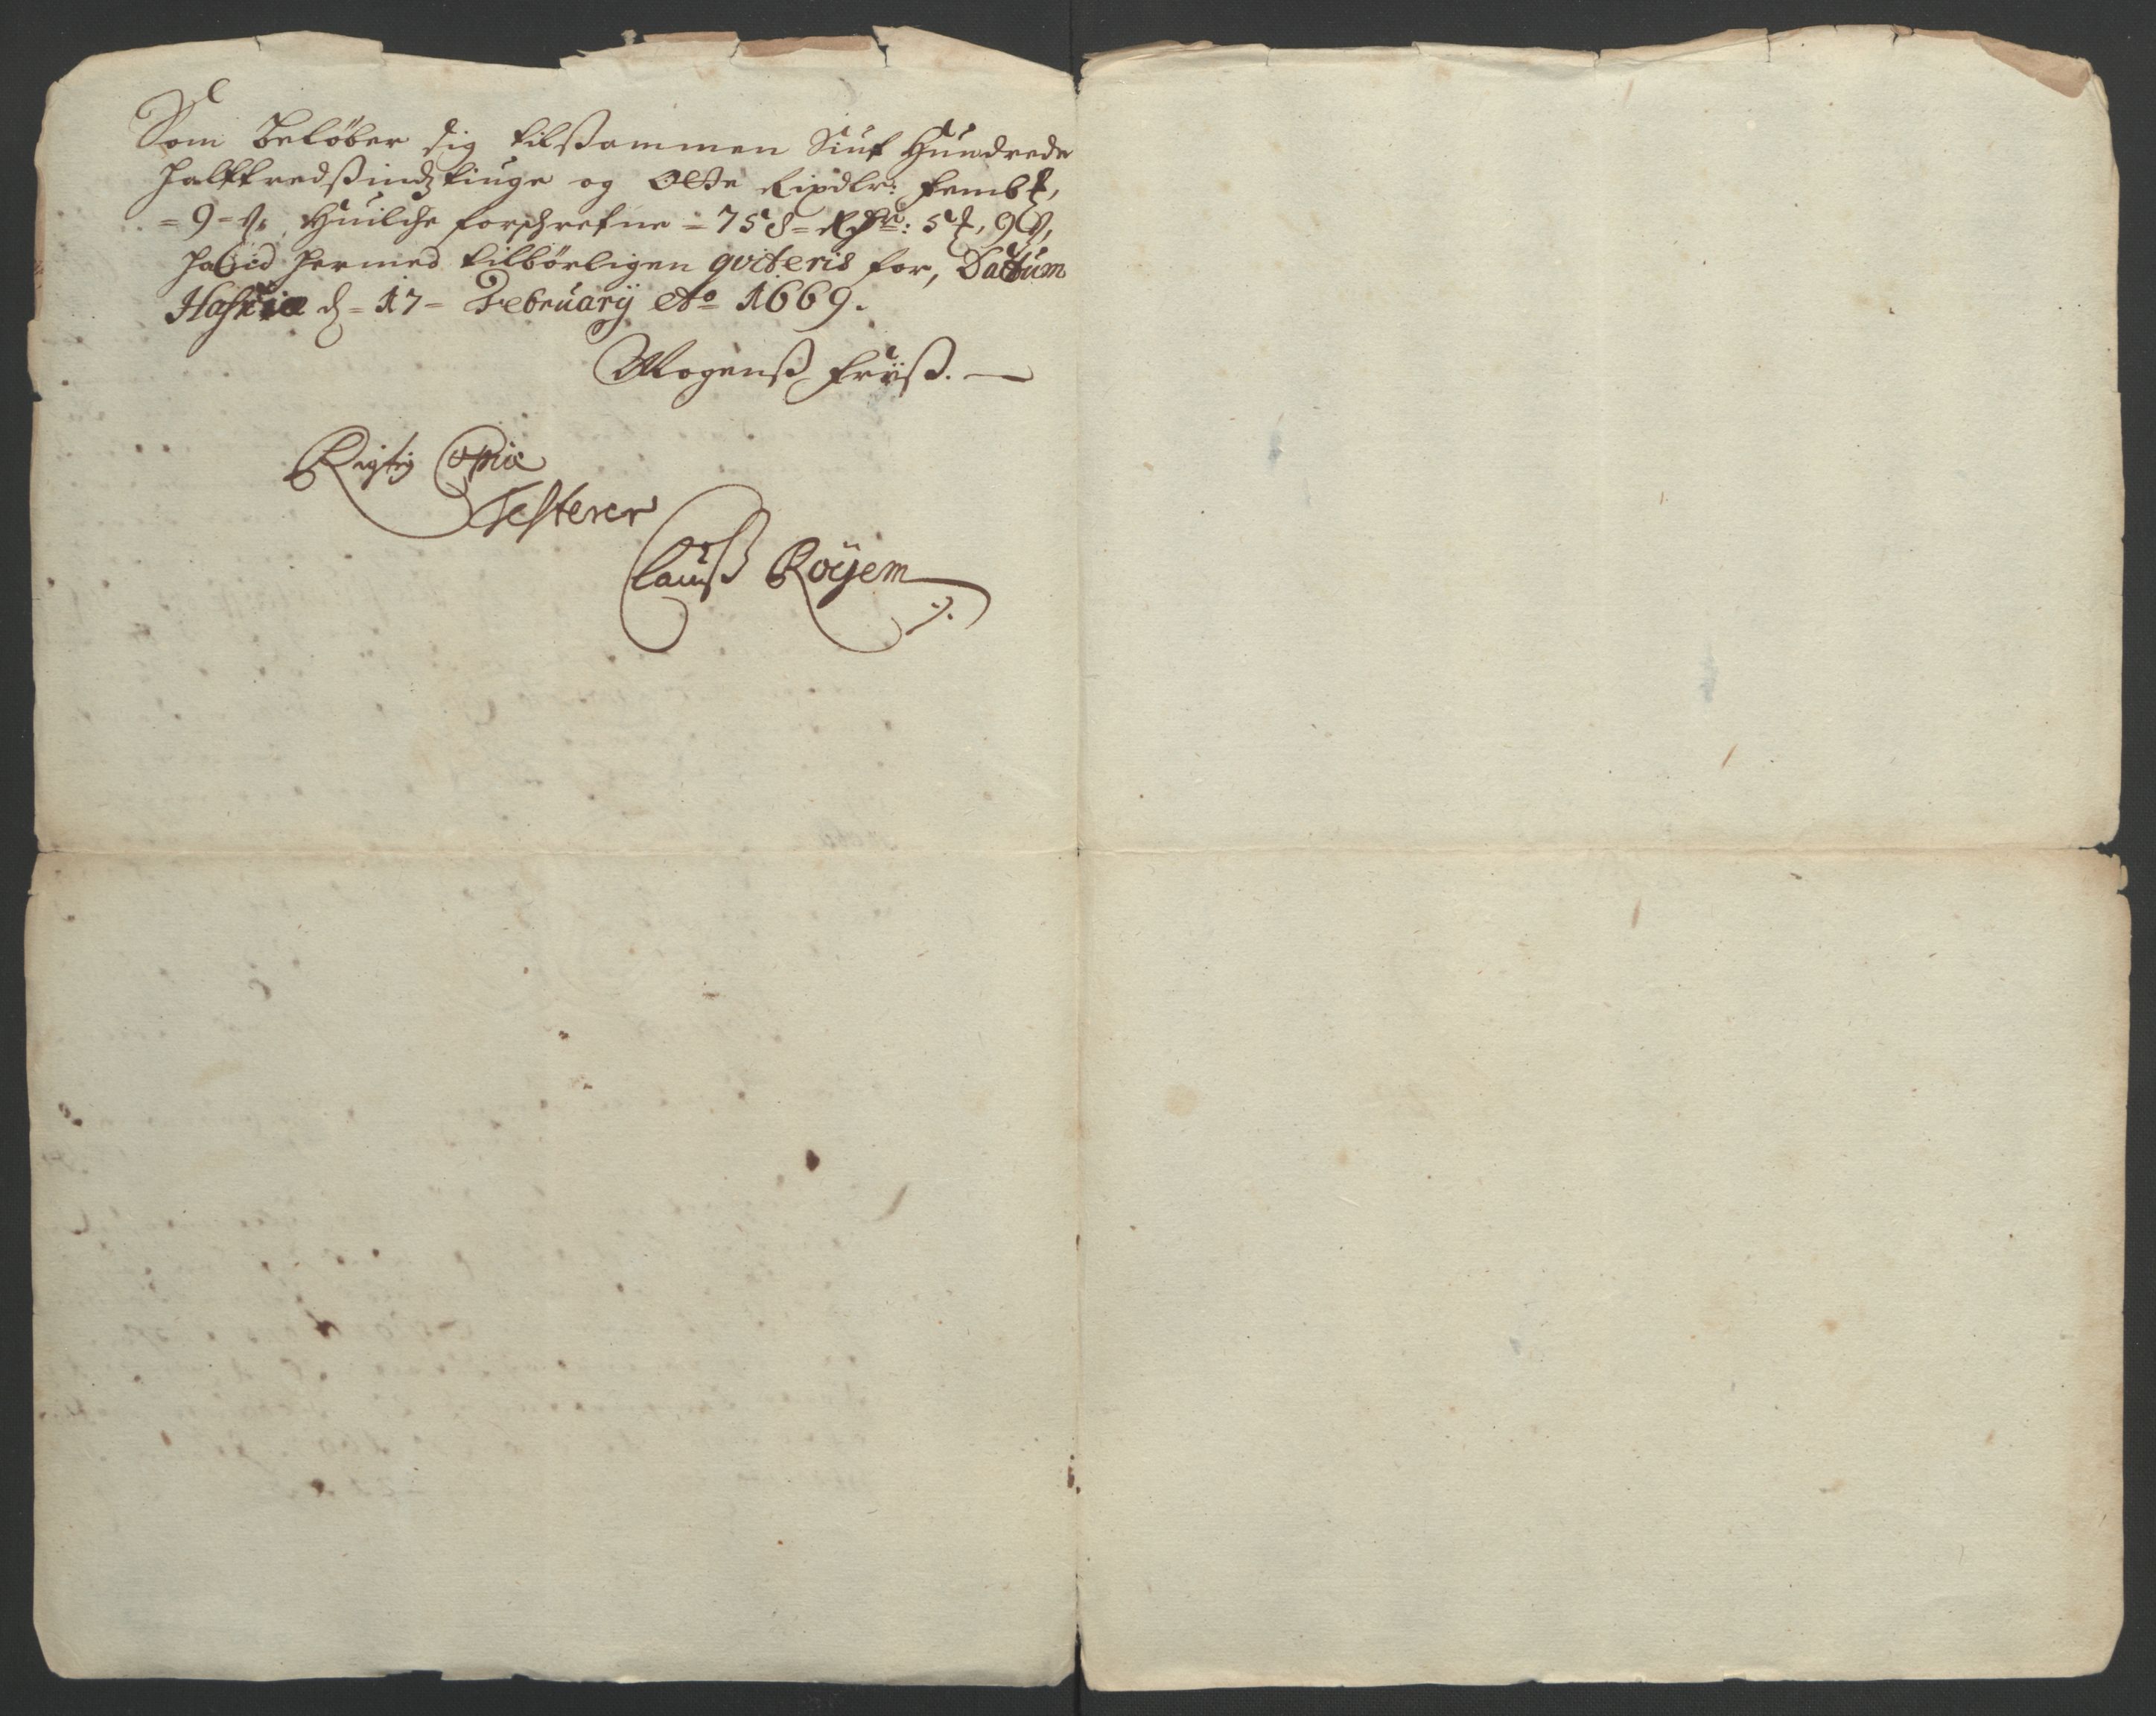 Som Beløber sig tilsammen Siuf Hundrede
halftredßindztiuge og Otte Rixdlr: fem
= 9 = Huilche forschrefne = 758 = Rdr: 5 , 9
hafuid hermed tilbørligen qviteris for, Datum
Hafniæ d = 17 = February Ao 1669.
Mogenß Friiß.
Rigtig Copie
Testerer
Clauß Röyem